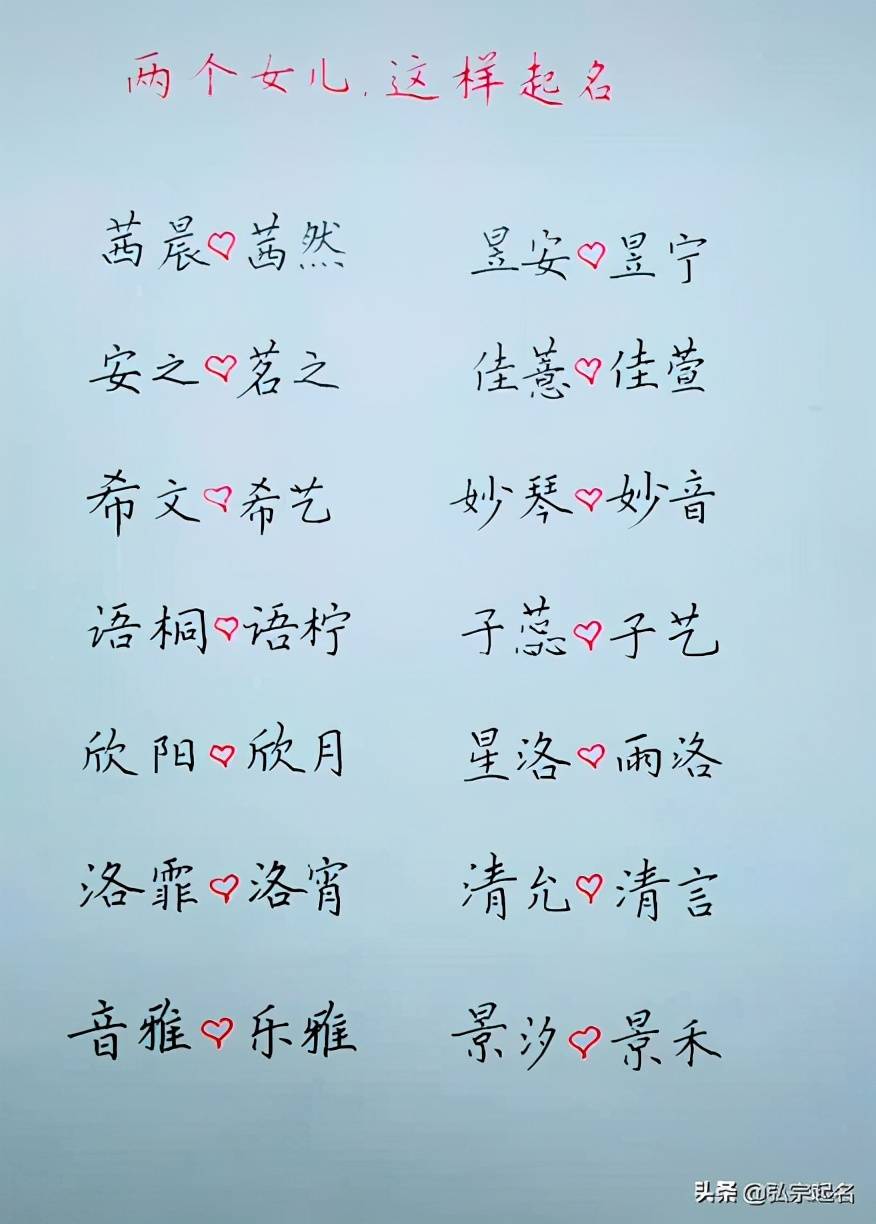 两个女儿，这样起名
茜晨♡茜然 昱安♡昱宁
安之♡茗之 佳薏♡佳萱
希文♡希艺 妙琴♡妙音
语桐♡语柠 子蕊♡子艺
欣阳♡欣月 星洛♡雨洛
洛霏♡洛宵 清允♡清言
音雅♡乐雅 景汐♡景禾
头条 @弘宗起名